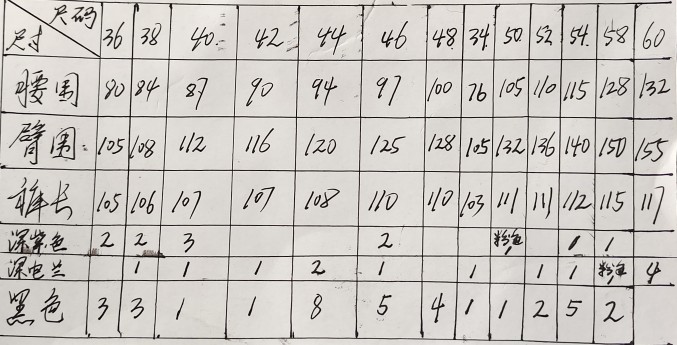 尺码
尺寸 36 38 40 42 44 46 48 34 50 52 54 58 60
腰围 80 84 87 90 94 97 100 76 105 110 115 128 132
臂围: 105 108 112 116 120 125 128 105 132 136 140 150 155
裤长 105 106 107 107 108 110 110 103 111 111 112 115 117
深紫色 2 2 3 2 1 1 1
深电兰 1 1 1 2 1 1 1 1 4
黑色 3 3 1 1 8 5 4 1 1 2 5 2